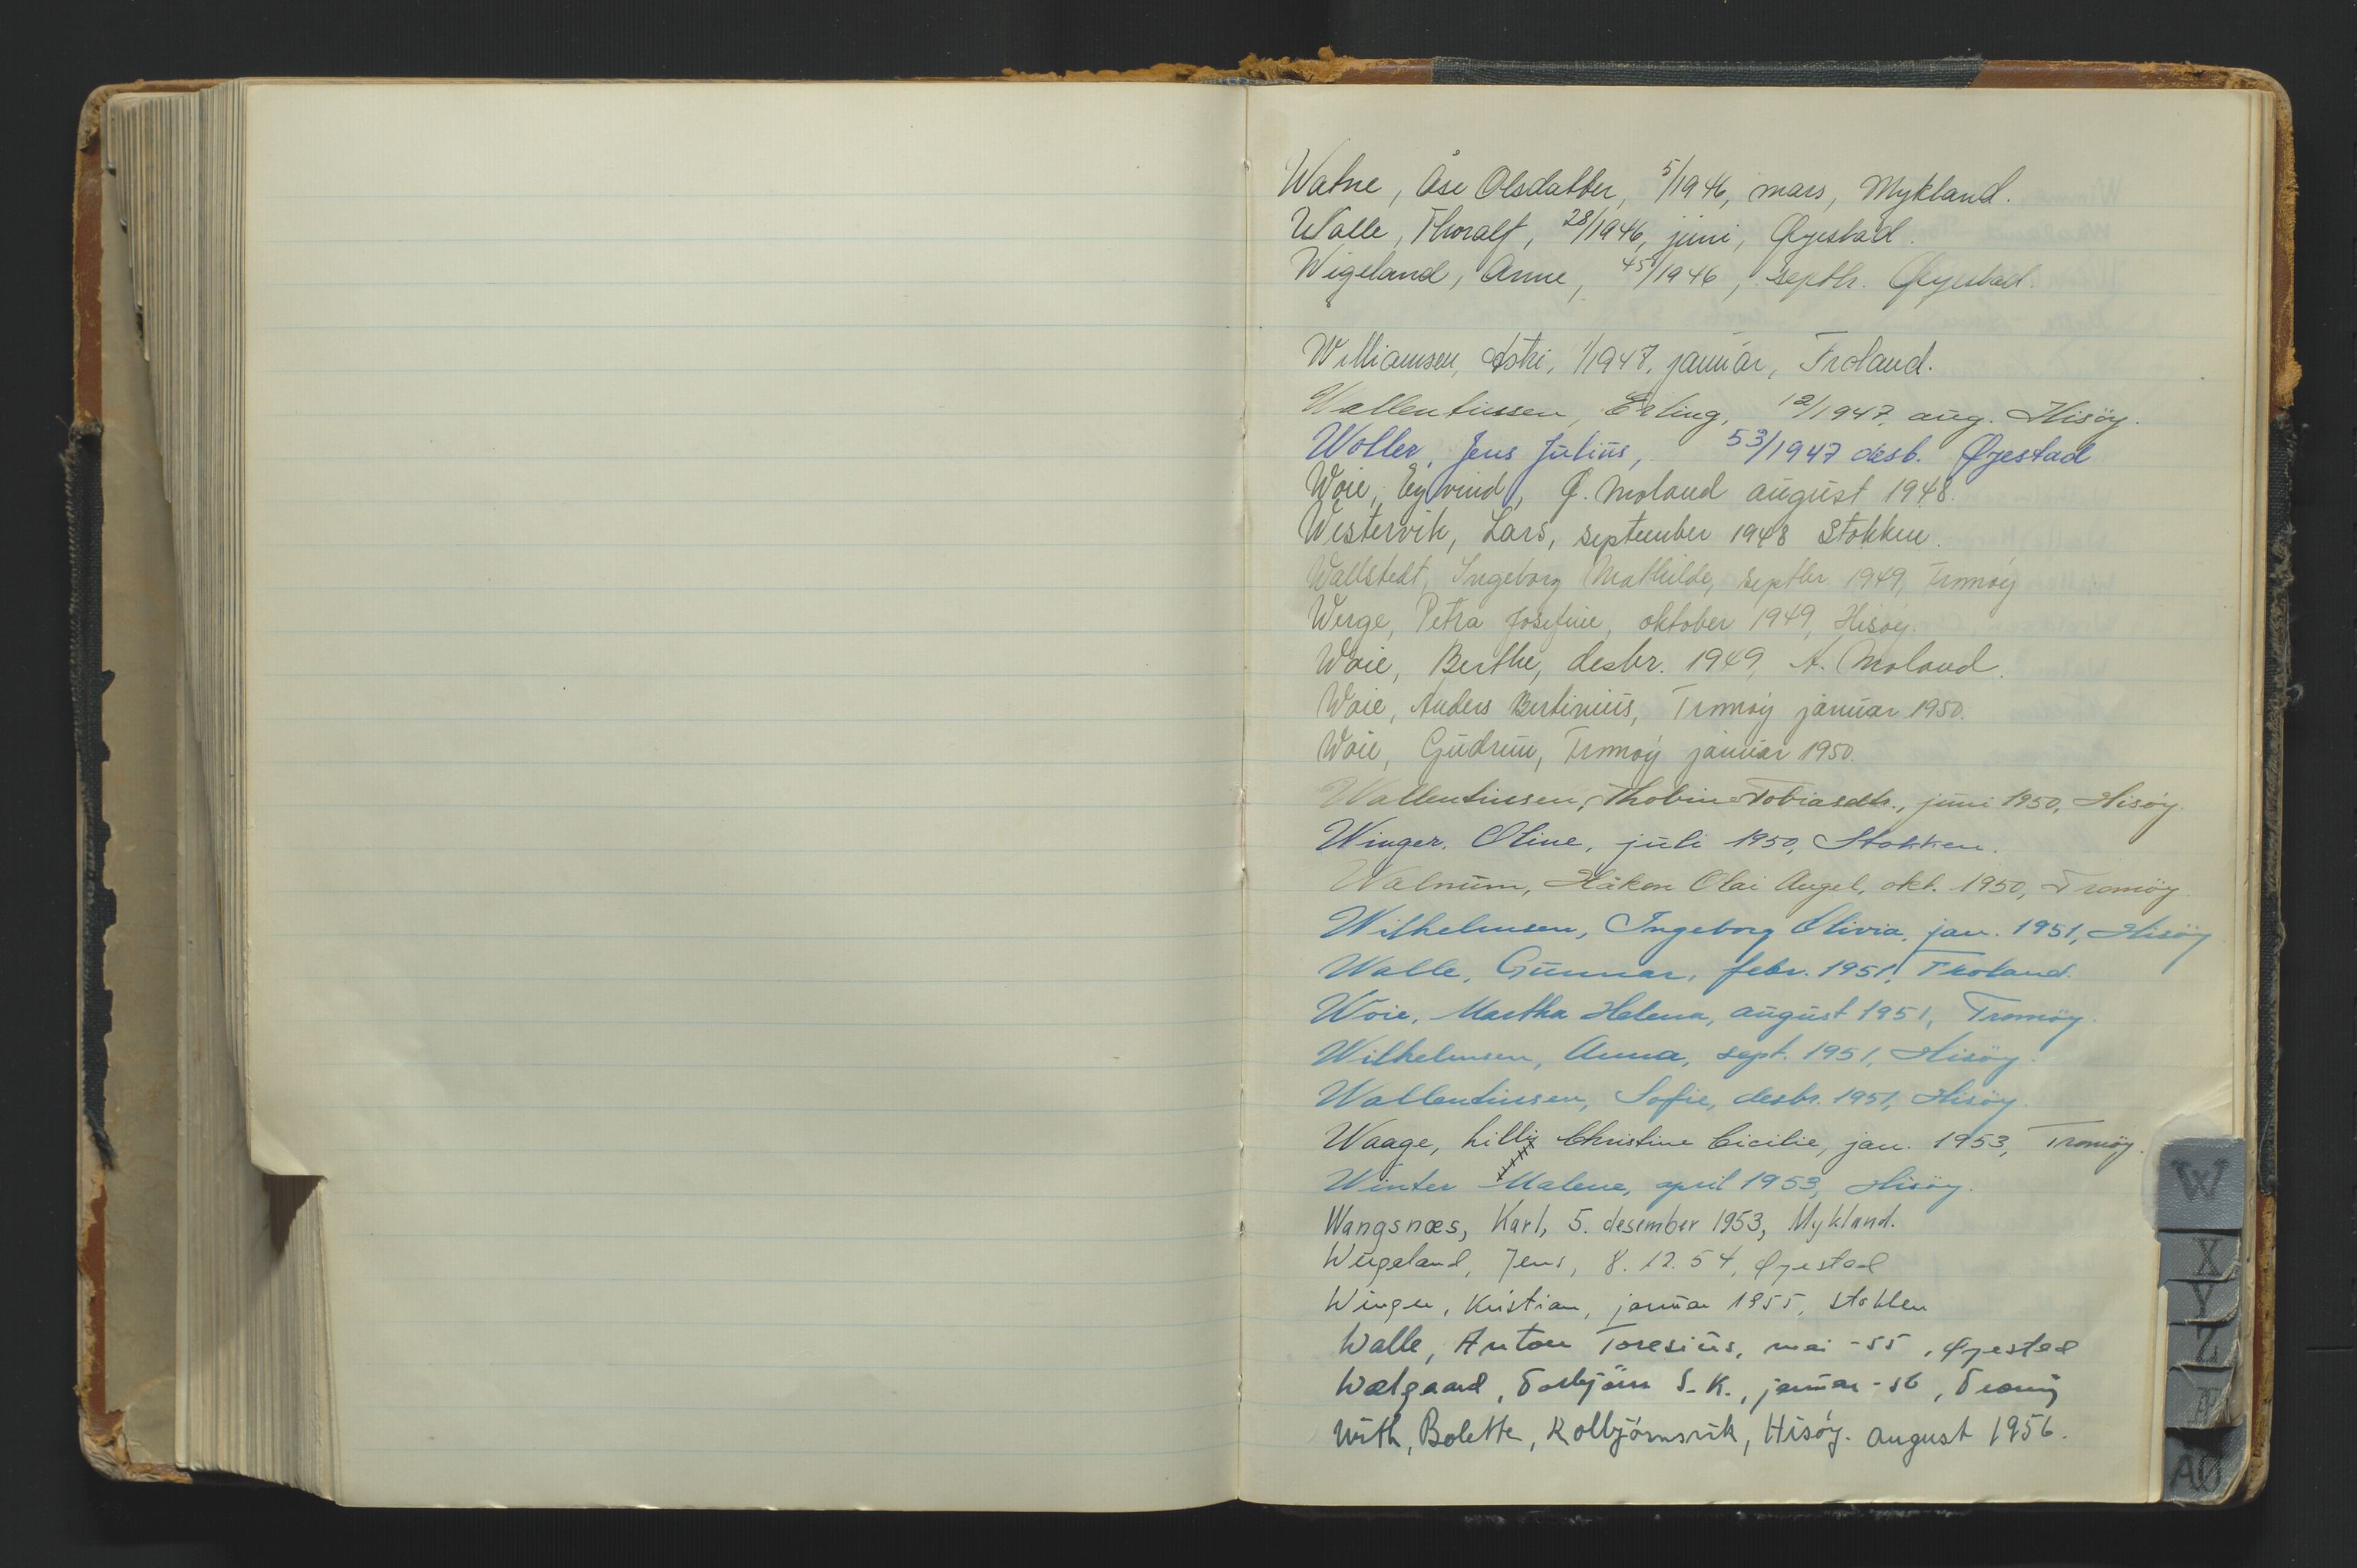 Watne, Åse Olsdatter, 5/1946, mars, Mykland.
Walle, Thoralf, 28/1946, juni, Øyestad.
Wigeland, Anne, 45/1946, septbr. Øyestad.
Williamsen, 1/1947, januar, Froland.
Wallentinsen, Erling, 12/1947, aug. Hisöy.
Woller, Jens Julius, 53/1947 desb. Øyestad
Woie, Eyvind, Ø. Moland august 1948.
Westervik, Lars, september 1948 Stokken.
Wallstedt, Ingeborg Mathilde, septbr. 1949, Tromöy
Werge, Petra Josefine, oktober 1949, Hisöy.
Woie, Berthe, desbr. 1949, A. Moland.
Woie, Anders Bertinius, Tromöy januar 1950.
Woie, Gudrun, Tromöy januar 1950.
Wallentinsen, Thobine Tobiasdtr., juni 1950, Hisöy.
Winger, Oline, juli 1950, Stokken.
Walnum, Håkon Olai Angel, okt. 1950, Tromöy
Wilhelmsen, Ingeborg Olivia, jan. 1951, Hisöy
Walle, Gunnar, febr. 1951, Froland.
Woie, Martha Helena, august 1951, Tromöy.
Wilhelmsen, Anna, sept. 1951, Hisöy.
Wallentinsen, Sofie, desbr. 1951, Hisöy.
Waage, Lilly Christine Cicilie, jan. 1953, Tromöy.
Winter Malene, april 1953, Hisöy.
Wangsnæs, Karl, 5. desember 1953, Mykland.
Wigeland, Jens, 8.12.54, Øyestad
Winger, Kristian, januar 1955, Stokken
Walle, Anton Toresius, mai -55, Øyestad
Torbjörn S. K., januar -56, Tromöy
With, Bolette, Kolbjörnsvik, Hisöy. august 1956.
W
X
Y
Z
Æ
AØ